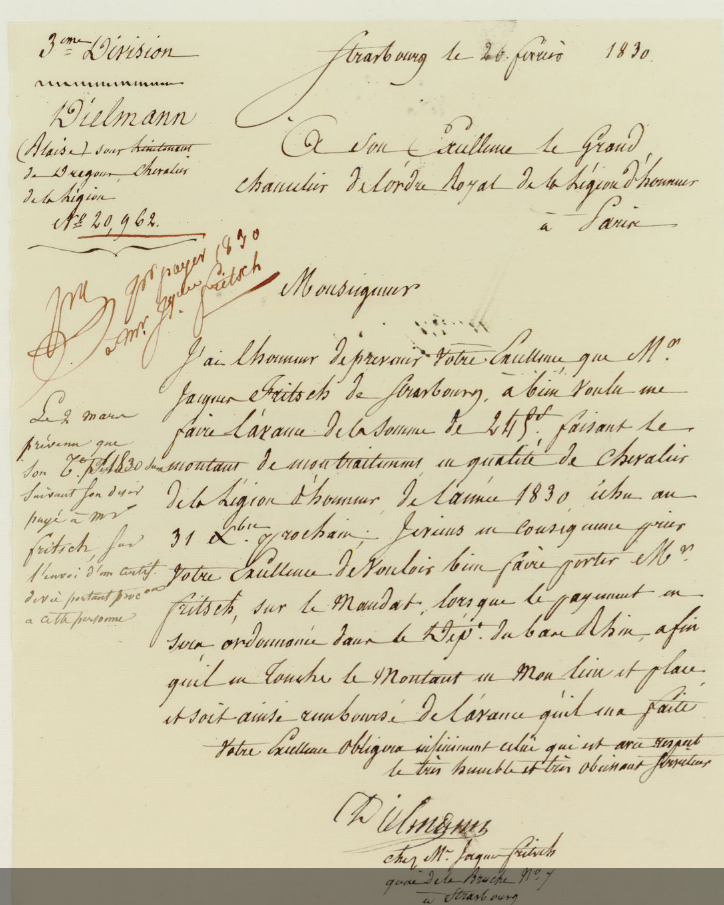 3eme Division
Strasbourg le 26 février 1830.
Dielmann
(Blaise) sous lieutenant
de Dragons, Chevalier
de la Légion
No 20,962.
A Son Excellence le Grand
chancelier de l'ordre Royal de la Légion d'honneur
à Paris
payer 1830
a Mr. Jques Fritsch
Monseigneur
J'ai l'honneur de prevenir Votre Excellence que Mr
Jacques Fritsch de Strasbourg, à bien voulu me
faire l'avance de la somme de 245f. faisant le
montant de mon traitement en qualité de Chevalier
de la Légion d'honneur, de l'année 1830 échu au
31 Xbre prochain; Je viens en consequence prier
Votre Excellence de vouloir bien faire porter Mr
fritsch, sur le Mandat, lorsque le payement en
sera ordonnancé dans le Dept. du bas Rhin, afin
qu'il en Touche le Montant en Mon lieu et place
et soit ainsi remboursé de l'avance qu'il m'a faite
Votre Excellence Obligera infiniment celui qui est avec respect
le très humble et très obéissant Serviteur
Le 2 mars
prévenu que
son Tt. pr 1830 sera
suivant son desir
payé à Mr
fritsch, sur
l'envoi d'un certif.
de vie portant procon
a cette personne
Dielmann
chez Mr Jacques fritsch
quai de la Bruche No. 7
à Strasbourg